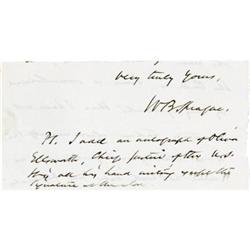 Very truly yours,
W B Sprague.
Ps. I add an autograph of Oliver
Ellsworth, Chief Justice of the U.S.
all his hand writing except the
signature